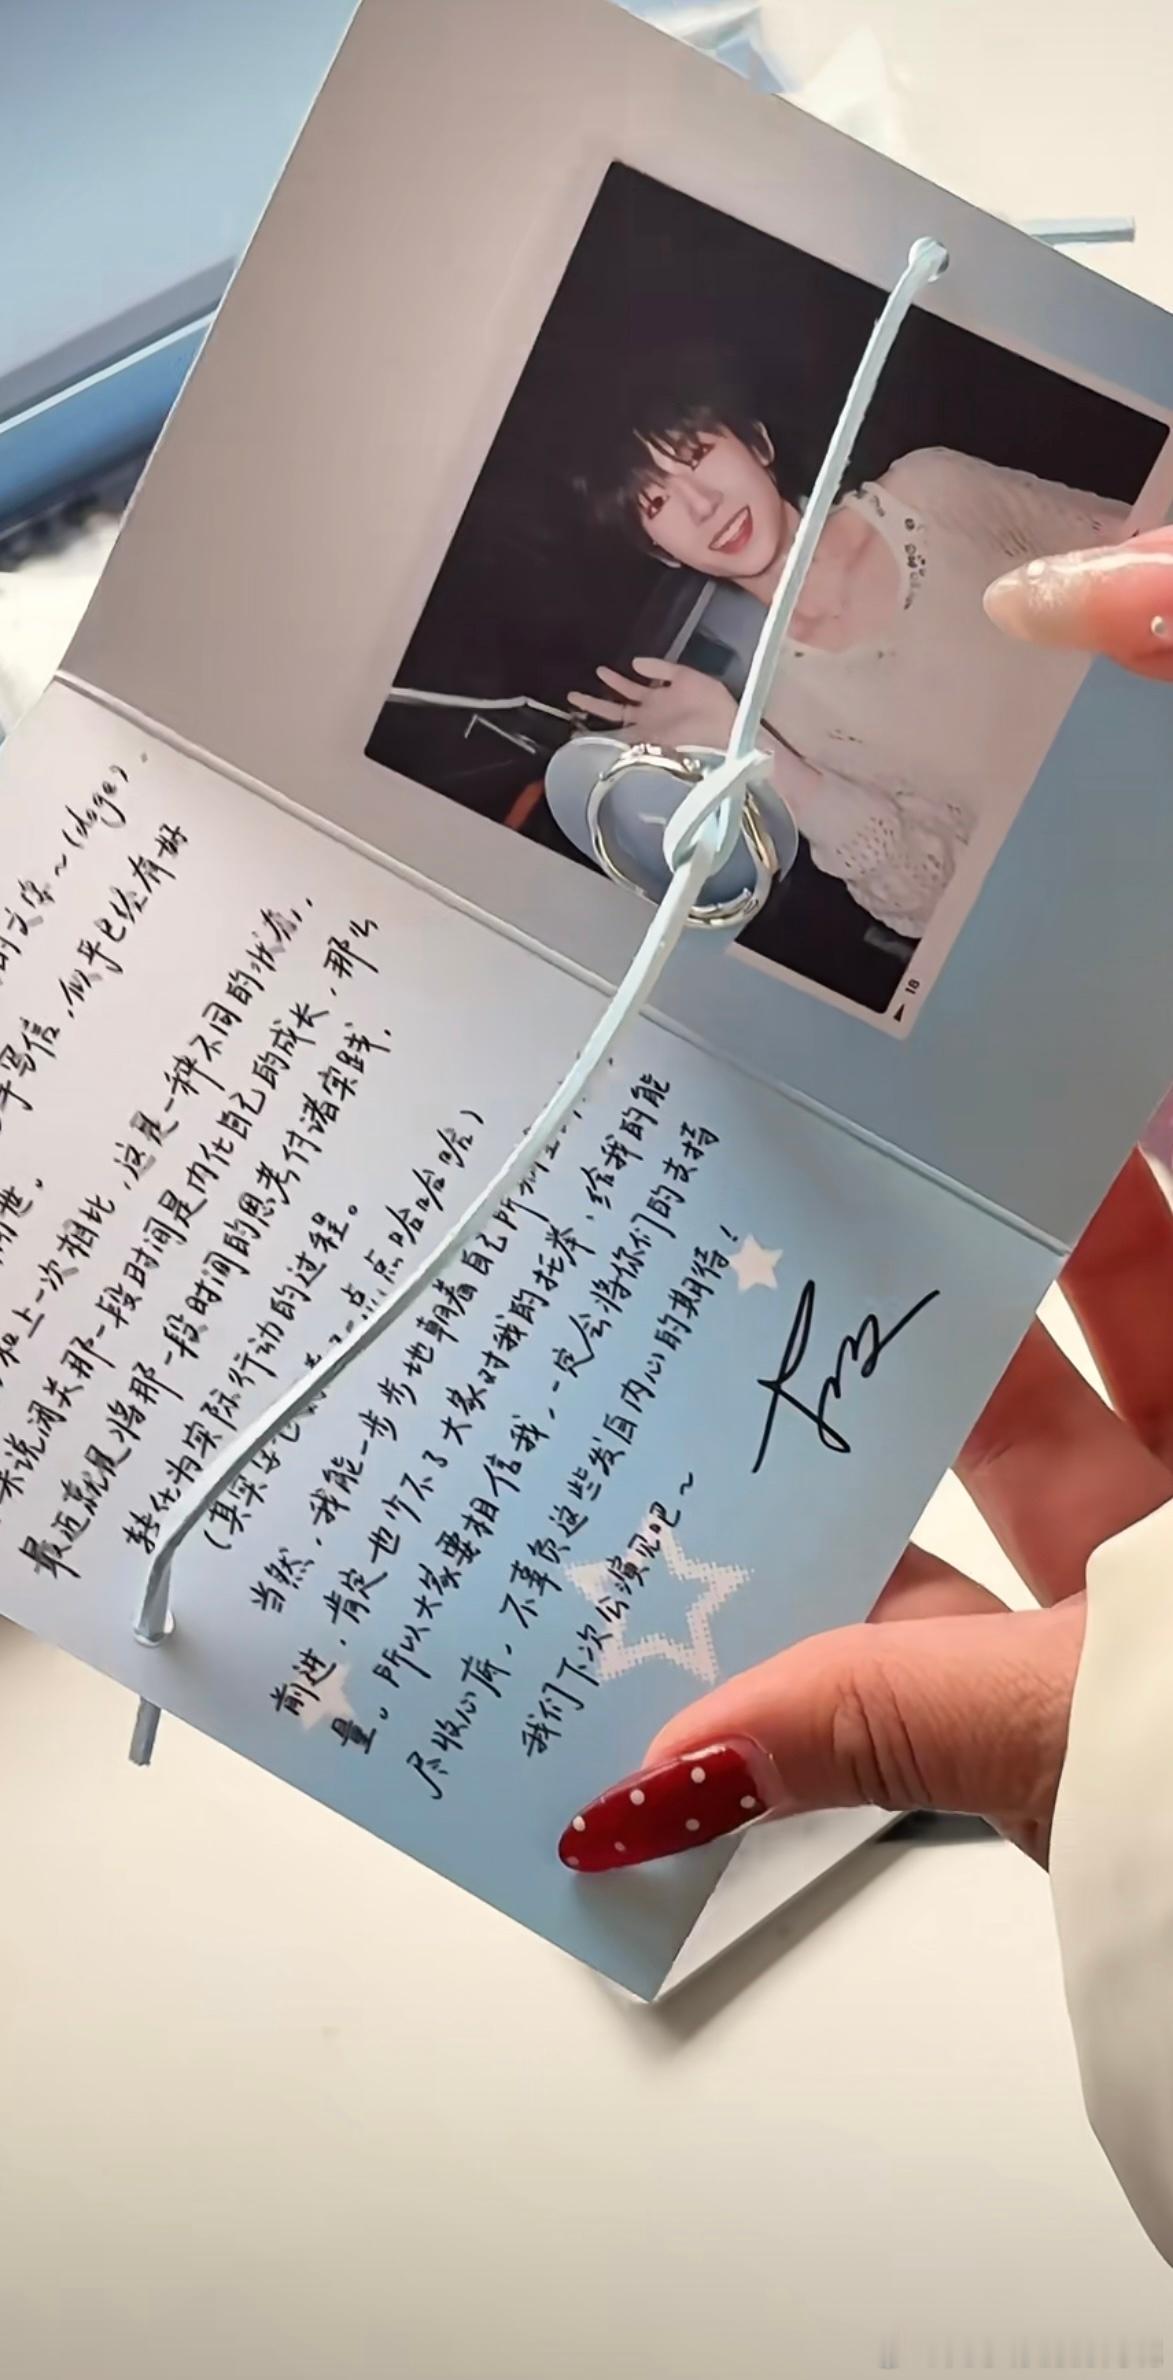 的文字~(doge).
手写信,似乎已经有好
和上一次相比,这是一种不同的状态,
来说闭关那一段时间是内化自己的成长,那么
最近就是将那一段时间的思考付诸实践,
转化为实际行动的过程。
(其实 点点哈哈哈)
当然,我能一步步地朝着自己所
前进,肯定也少不了大家对我的托举、给我的能
量。所以大家要相信我,一定会将你们的支持
尽收心底,不辜负这些发自内心的期待!
我们下次公演见吧~
18